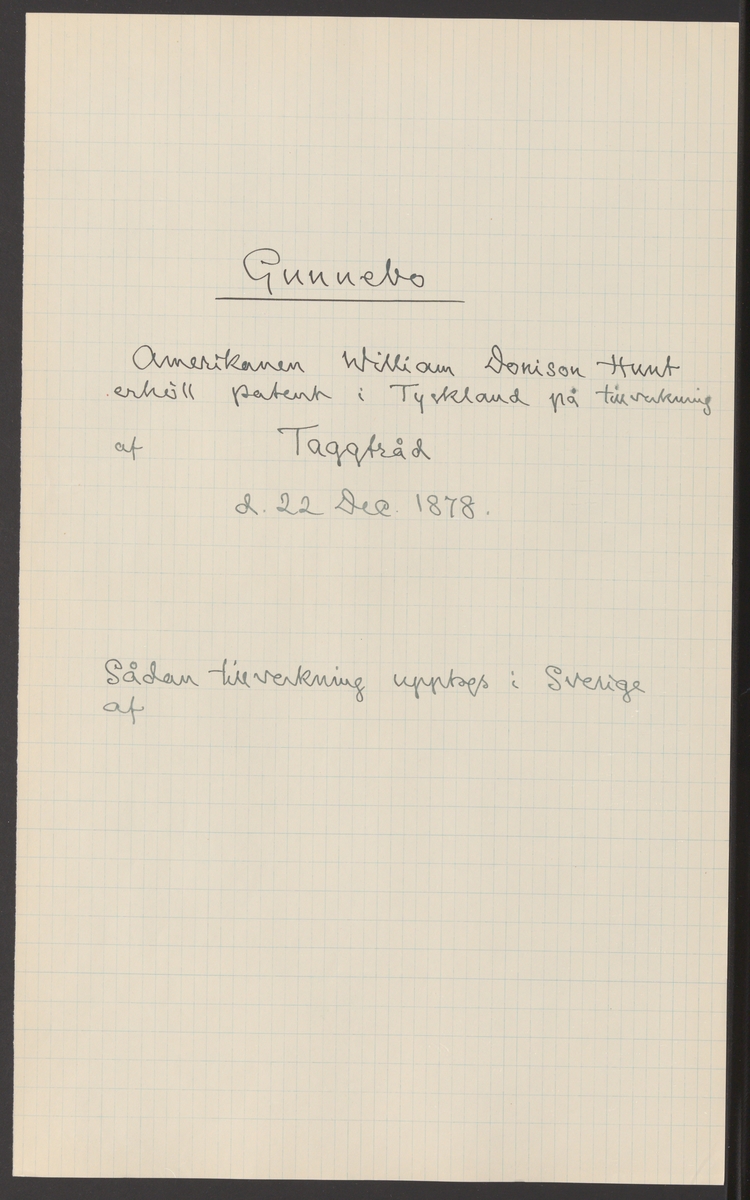 Gunnebo
Amerikanen William Donison Hunt
erhöll patent i Tyskland på tillverkning
af Taggtråd
d. 22 Dec. 1878.
Sådan tillverkning upptogs i Sverige
af